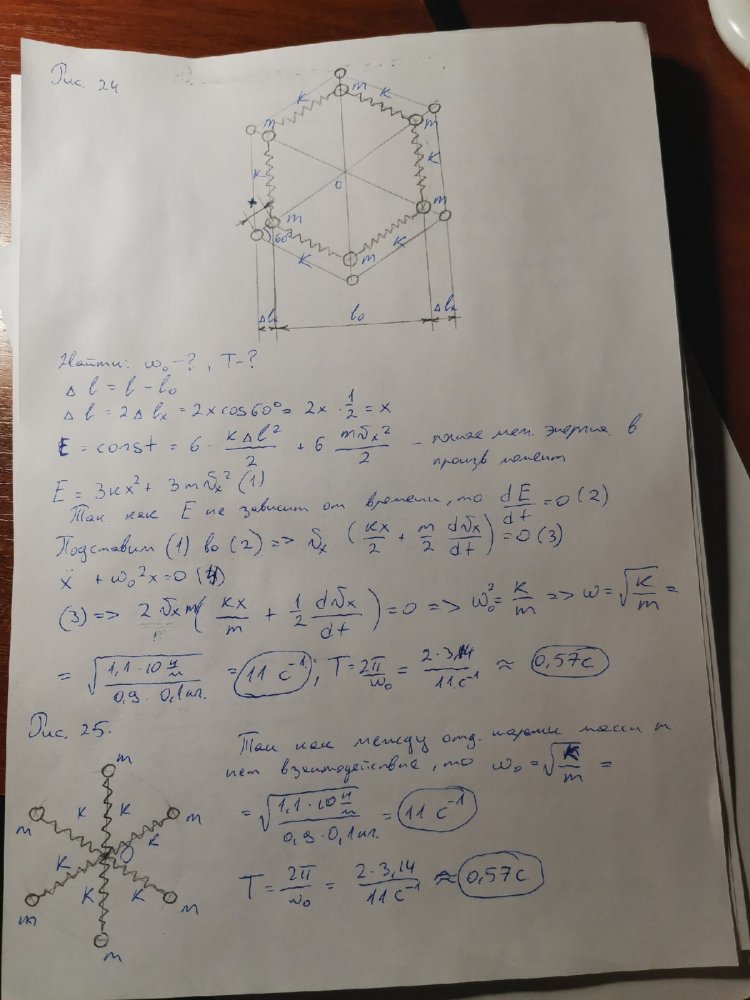 Рис. 24
m
K
K
m
m
K
K
O
x
m
m
60°
K
K
m
Δlₓ
l₀
Δlₓ
Найти: ω₀-?, T-?
Δl = l - l₀
Δl = 2Δlₓ = 2x cos60° = 2x · 1/2 = x
E = const = 6 · kΔl²/2 + 6 mVₓ²/2 - полная мех. энергия в
произв момент
E = 3kx² + 3mVₓ² (1)
Так как E не зависит от времени, то dE/dt = 0 (2)
Подставим (1) во (2) => Vₓ (kx/2 + m/2 dVₓ/dt) = 0 (3)
ẍ + ω₀²x = 0 (4)
(3) => 2Vₓm (kx/m + 1/2 dVₓ/dt) = 0 => ω₀² = k/m => ω = √(k/m) =
= √(1,1 · 10 Н/м / 0,9 · 0,1кг.) = 11 с⁻¹; T = 2π/ω₀ = 2·3,14/11с⁻¹ ≈ 0,57с
Рис. 25.
Так как между отд. парами масс m
нет взаимодействия, то ω₀ = √(k/m) =
= √(1,1 · 10 Н/м / 0,9 · 0,1кг.) = 11 с⁻¹
T = 2π/ω₀ = 2·3,14/11с⁻¹ ≈ 0,57с
m
m
K
K
m
K
O
K
K
K
m
m
m